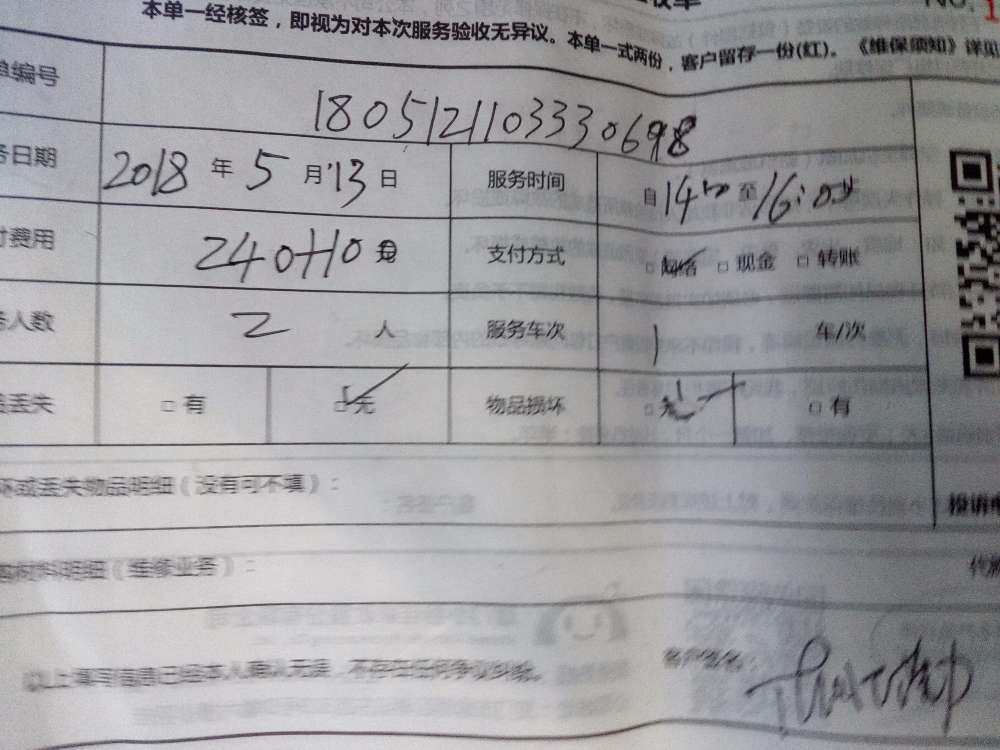 NO. 1
本单一经核签，即视为对本次服务验收无异议。本单一式两份，客户留存一份(红)。《维保须知》详见
单编号 1805121103330698
务日期 2018 年 5 月 13 日 服务时间 自 14 至 16:
付费用 240+10 支付方式 □ 网络 □ 现金 □ 转账
务人数 2 人 服务车次 1 车/次
丢失 □ 有 □ 无 物品损坏 □ 无 □ 有
坏或丢失物品明细（没有可不填）：
投诉
材料明细（维修业务）：
以上填写信息已经本人确认无误，不存在任何争议纠纷。 客户签名：